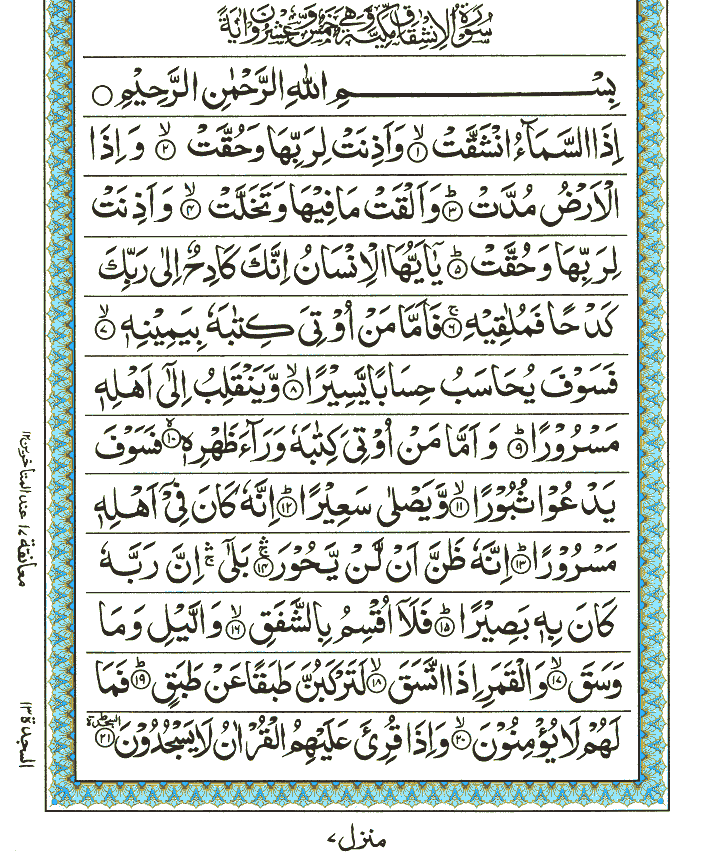 سُوْرَةُ الْاِنْشِقَاقِ مَكِّيَّةٌ وَّهِيَ خَمْسٌ وَّعِشْرُوْنَ اٰيَةً
بِسْمِ اللّٰهِ الرَّحْمٰنِ الرَّحِيْمِ ○
اِذَا السَّمَآءُ انْشَقَّتْ ۙ﴿۱﴾ وَاَذِنَتْ لِرَبِّهَا وَحُقَّتْ ۙ﴿۲﴾ وَاِذَا
الْاَرْضُ مُدَّتْ ؕ﴿۳﴾ وَاَلْقَتْ مَا فِيْهَا وَتَخَلَّتْ ۙ﴿۴﴾ وَاَذِنَتْ
لِرَبِّهَا وَحُقَّتْ ؕ﴿۵﴾ يٰۤاَيُّهَا الْاِنْسَانُ اِنَّكَ كَادِحٌ اِلٰى رَبِّكَ
كَدْحًا فَمُلٰقِيْهِ ۚ﴿۶﴾ فَاَمَّا مَنْ اُوْتِيَ كِتٰبَهٗ بِيَمِيْنِهٖ ۙ﴿۷﴾
فَسَوْفَ يُحَاسَبُ حِسَابًا يَّسِيْرًا ۙ﴿۸﴾ وَّيَنْقَلِبُ اِلٰۤى اَهْلِهٖ
مَسْرُوْرًا ؕ﴿۹﴾ وَاَمَّا مَنْ اُوْتِيَ كِتٰبَهٗ وَرَآءَ ظَهْرِهٖ ۙ﴿۱۰﴾ فَسَوْفَ
يَدْعُوْا ثُبُوْرًا ۙ﴿۱۱﴾ وَّيَصْلٰى سَعِيْرًا ؕ﴿۱۲﴾ اِنَّهٗ كَانَ فِيْۤ اَهْلِهٖ
مَسْرُوْرًا ؕ﴿۱۳﴾ اِنَّهٗ ظَنَّ اَنْ لَّنْ يَّحُوْرَ ۛۚ﴿۱۴﴾ بَلٰٓى ۛۚ اِنَّ رَبَّهٗ
كَانَ بِهٖ بَصِيْرًا ؕ﴿۱۵﴾ فَلَاۤ اُقْسِمُ بِالشَّفَقِ ۙ﴿۱۶﴾ وَالَّيْلِ وَمَا
وَسَقَ ۙ﴿۱۷﴾ وَالْقَمَرِ اِذَا اتَّسَقَ ۙ﴿۱۸﴾ لَتَرْكَبُنَّ طَبَقًا عَنْ طَبَقٍ ؕ﴿۱۹﴾ فَمَا
لَهُمْ لَا يُؤْمِنُوْنَ ۙ﴿۲۰﴾ وَاِذَا قُرِئَ عَلَيْهِمُ الْقُرْاٰنُ لَا يَسْجُدُوْنَ ؕ﴿۲۱﴾ السجدة
معانقة ۱۷ عند المتأخرين ۱۲
السجدة ۱۳
منزل ۷